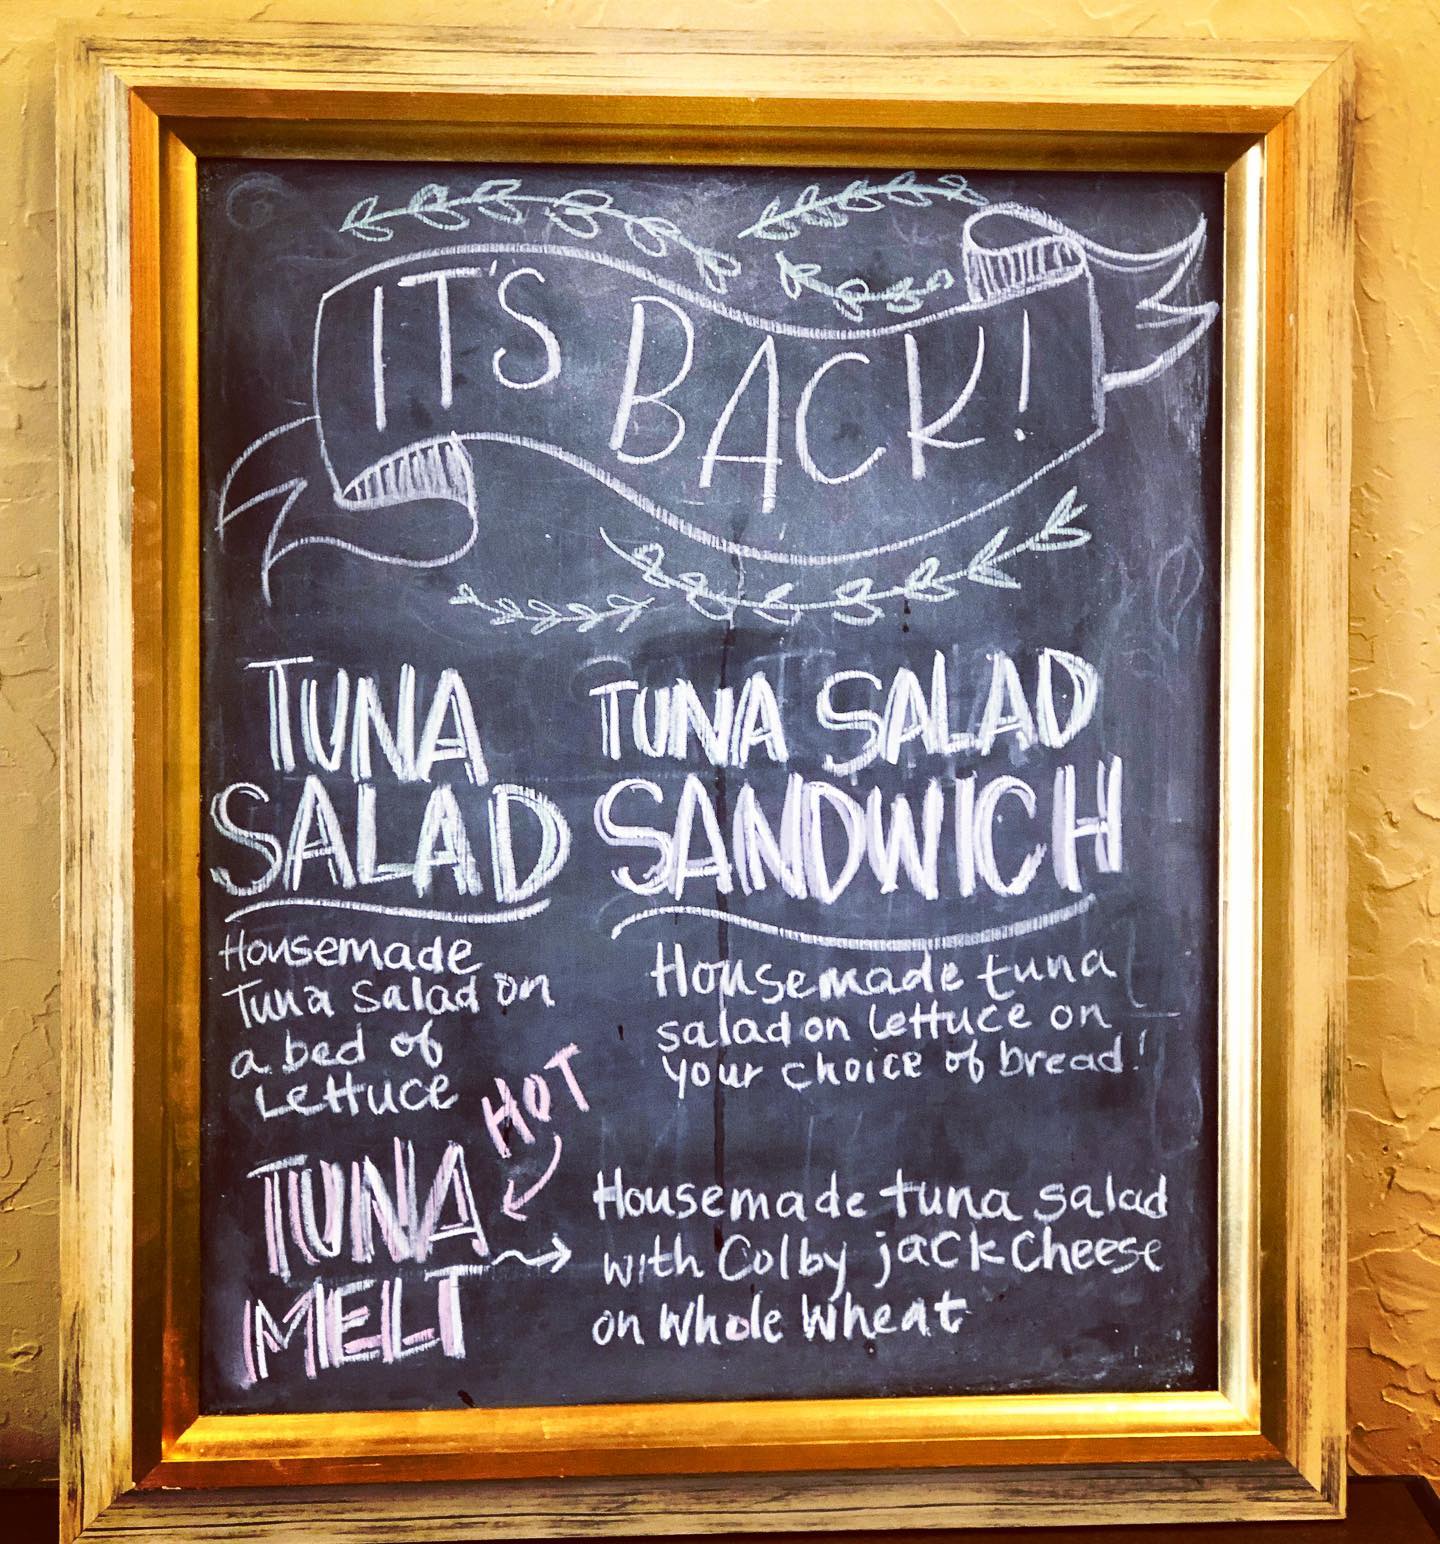 IT'S BACK!
TUNA
SALAD
Housemade
Tuna salad on
a bed of
Lettuce
TUNA SALAD
SANDWICH
Housemade tuna
salad on lettuce on
your choice of bread!
HOT
TUNA
MELT
Housemade tuna salad
with Colby jack Cheese
on Whole Wheat